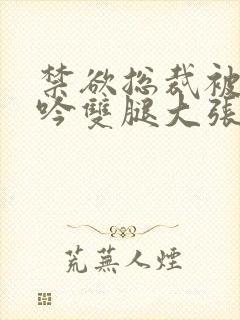 禁欲总裁被
吟雙腿大张
荒蕪人煙